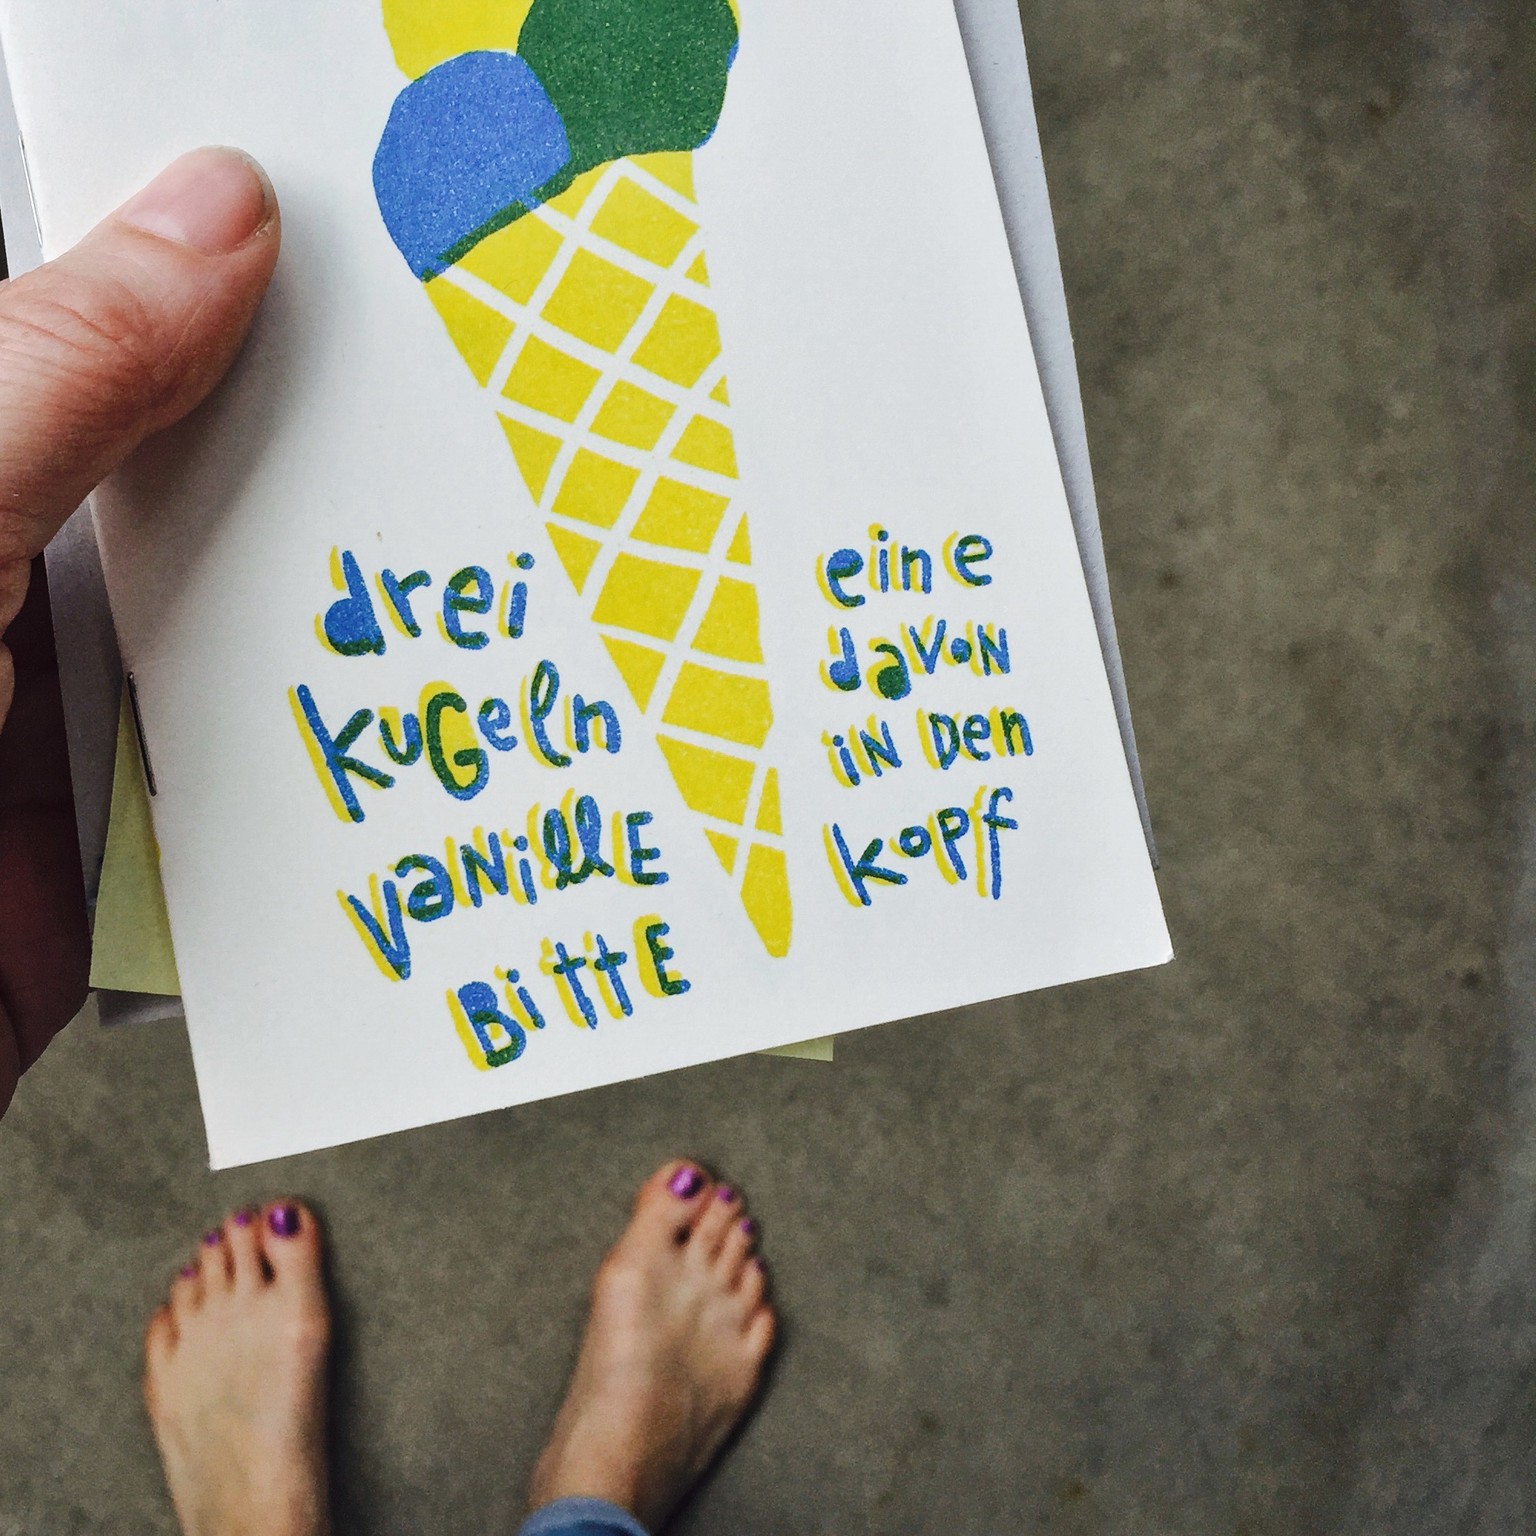 drei
kuGeln
vaNillE
BittE
eine
davoN
iN Den
kopf